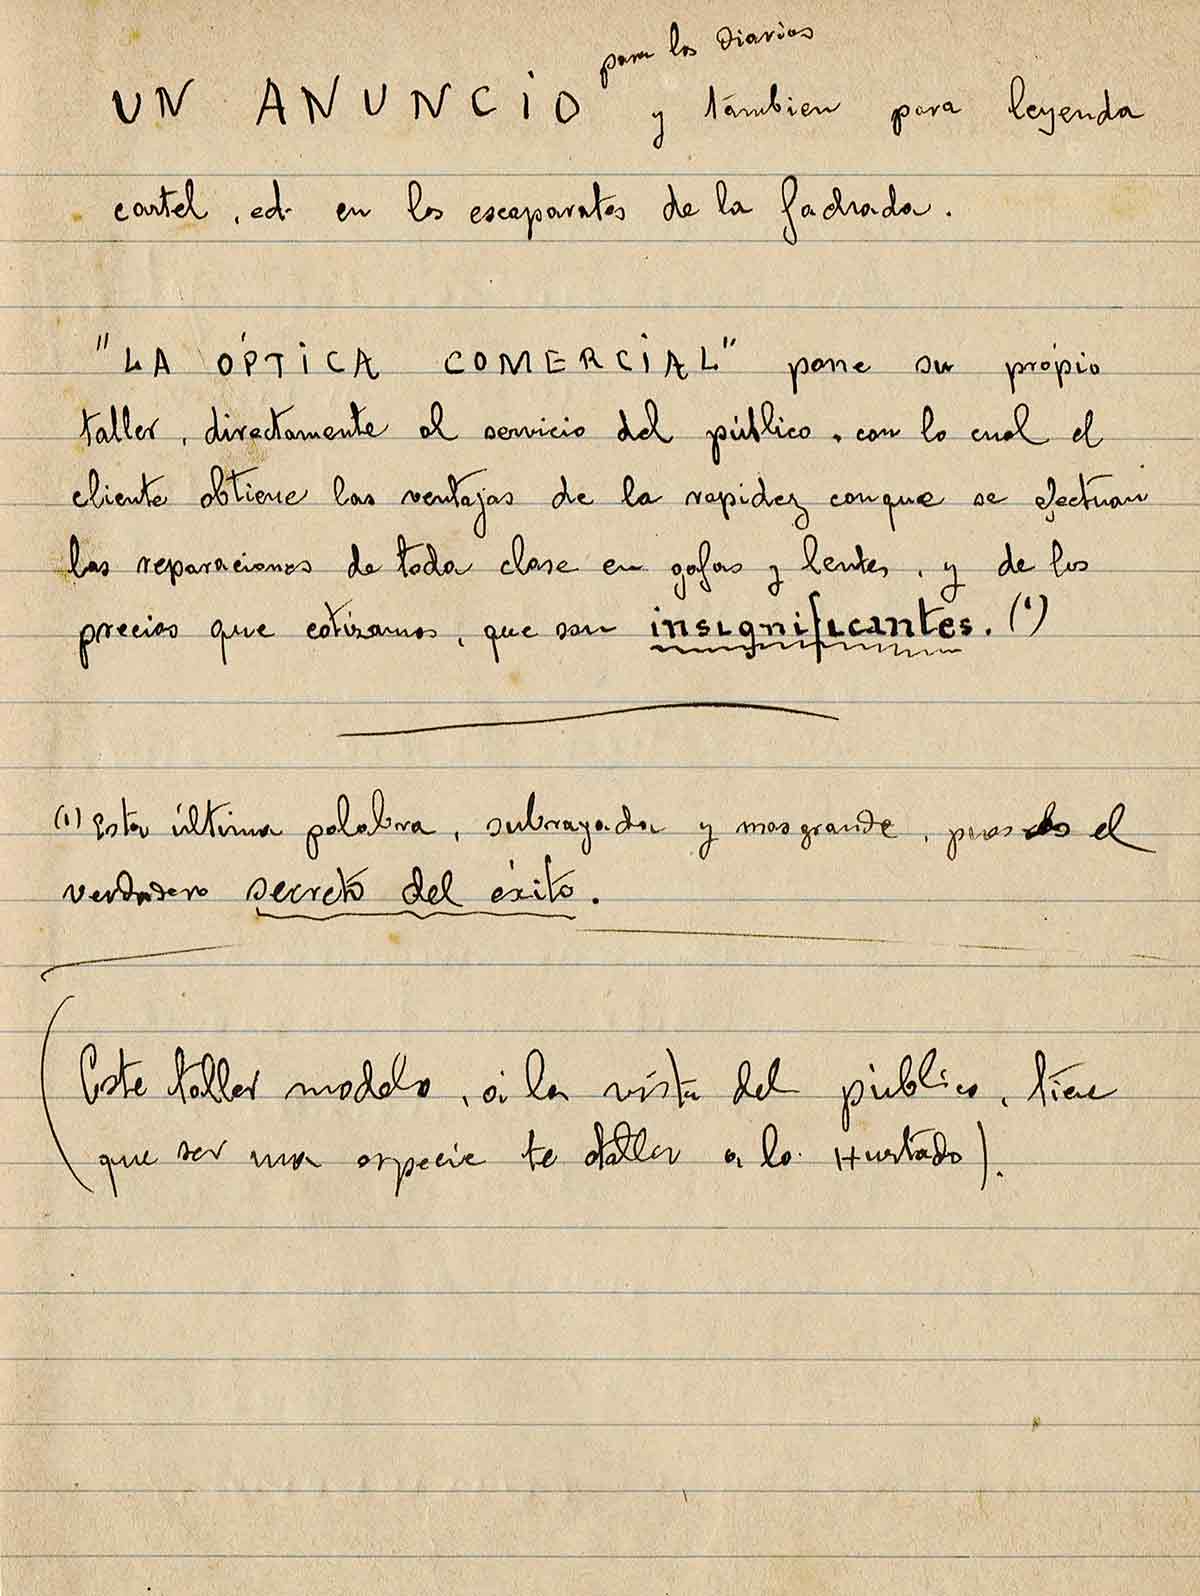 para los Diarios
UN ANUNCIO y támbien para leyenda
cartel, ed. en los escaparates de la fachada.
"LA ÓPTICA COMERCIAL" pone su própio
taller, directamente al servicio del público, con lo cual el
cliente obtiene las ventajas de la rapidez conque se efectuan
las reparaciones de toda clase en gafas y lentes, y de los
precios que cotizamos, que son insignificantes. (1)
(1) Esta última palabra, subrayada y mas grande, pues es el
verdadero secreto del éxito.
(Este taller modelo, a la vista del público, tiene
que ser una especie te taller a lo Hurtado).